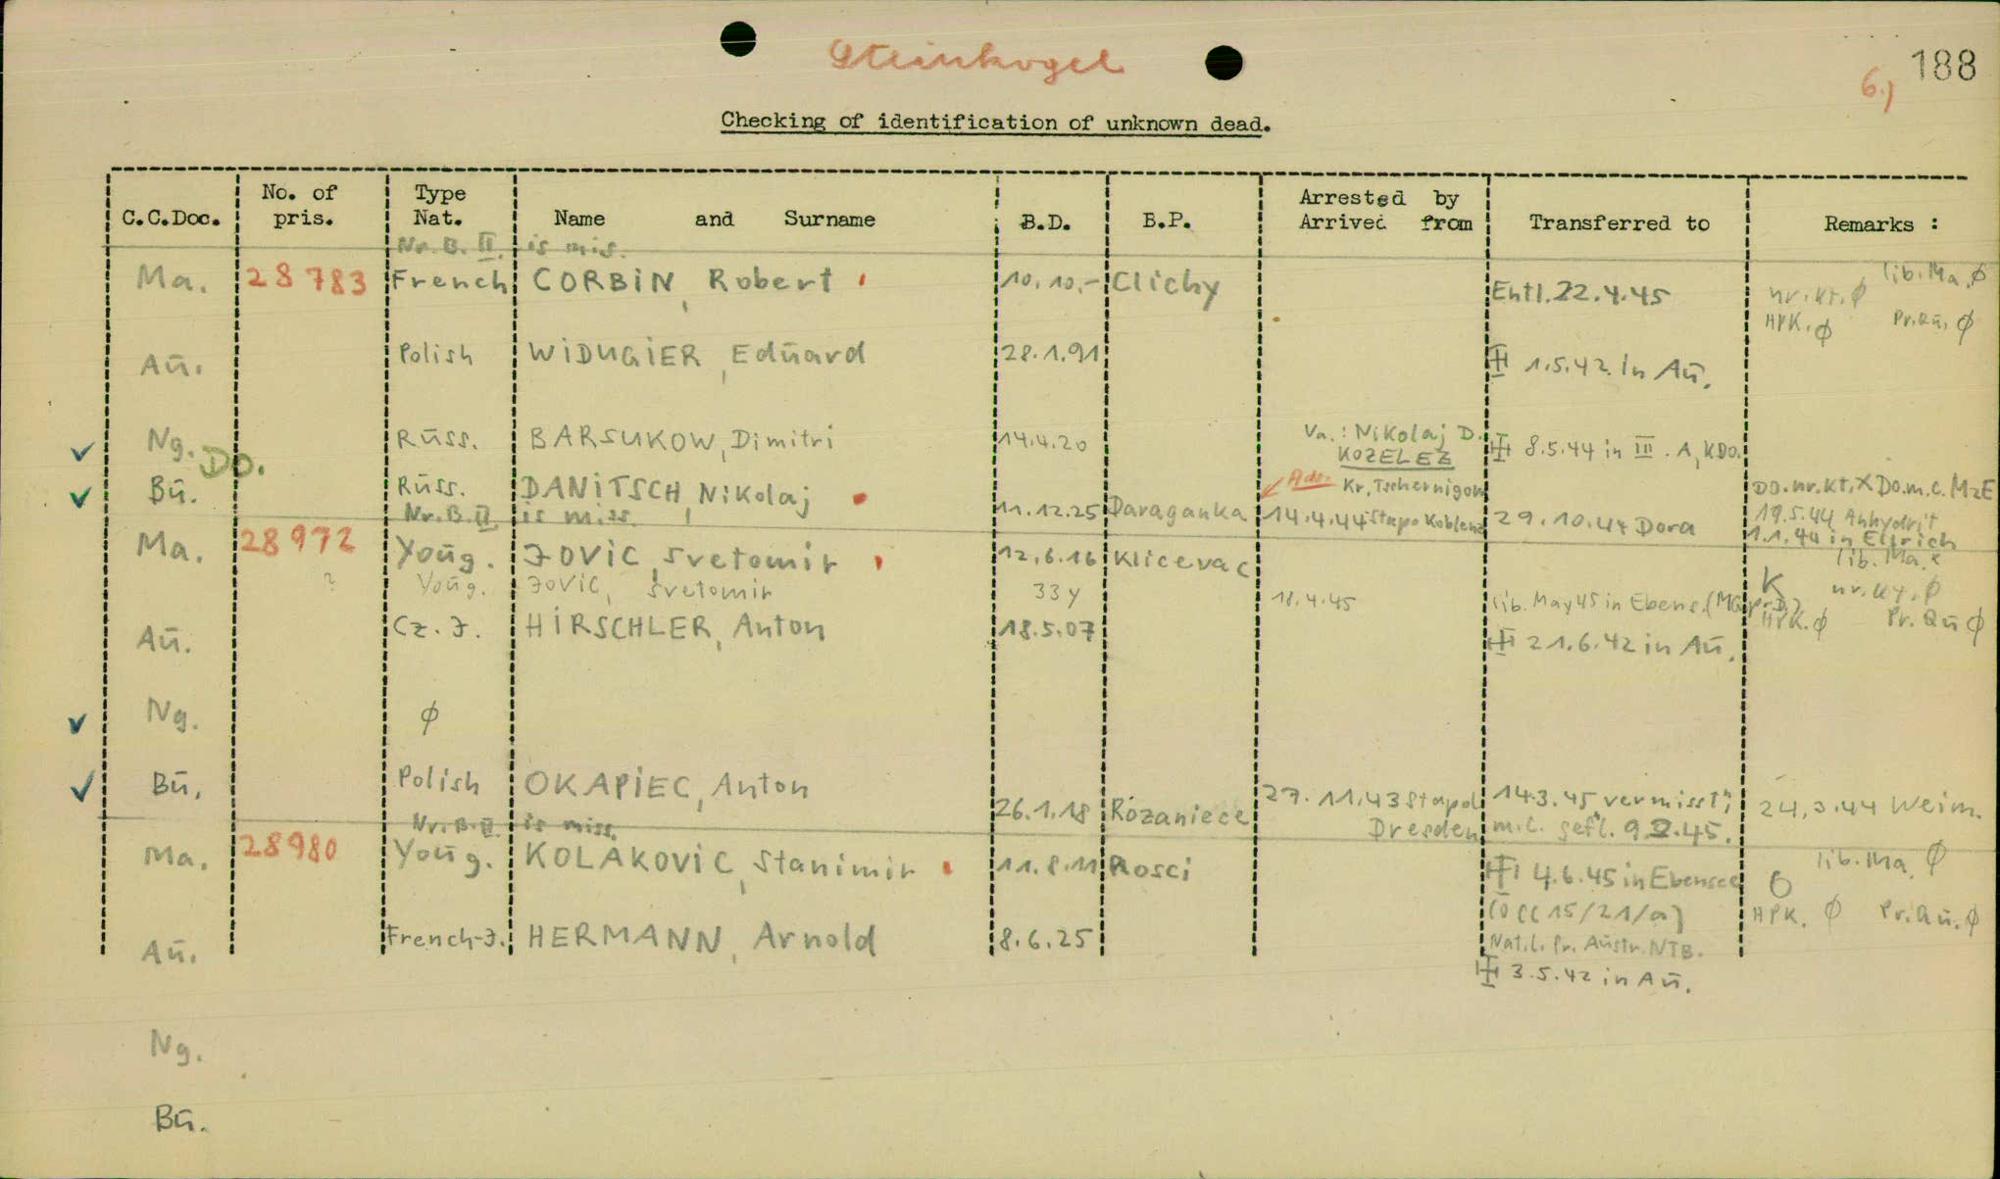 Steinkogel
188
6.)
Checking of identification of unknown dead.
C.C.Doc. No. of pris. Type Nat. Name and Surname B.D. B.P. Arrested by Arrived from Transferred to Remarks :
Nr. B. II is mis.
Ma. 28783 French CORBIN, Robert 10.10.- Clichy Entl. 22.4.45 nr.kt. ø lib. Ma. ø
HPK. ø Pr.Qū. ø
Aū. Polish WIDUGIER, Edūard 28.1.91 1.5.42 in Aū.
Ng. Rūss. BARSUKOW, Dimitri 14.4.20 8.5.44 in III. A, KDo.
Va.: Nikolaj D.
KOZELEZ
Do.
Bū. Rūss. DANITSCH, Nikolaj 11.12.25 Daraganka Adr. Kr. Tschernigow
14.4.44 Stapo Koblenz 29.10.44 Dora Do.nr.kt. X Do.m.c. MzE
19.5.44 Anhydrit
1.1.44 in Ellrich
Nr. B. II is miss.
Ma. 28972 Yoūg. JOVIC, Svetomir 12.6.16 Klicevac lib. Ma. x
? Yoūg. JOVIC, Svetomir 33 y 18.4.45 lib. May 45 in Ebens. K nr.kt. ø
HPK. ø Pr. Qū ø
Aū. Cz. J. HIRSCHLER, Anton 18.5.07 21.6.42 in Aū.
Ng. ø
Bū. Polish OKAPIEC, Anton 26.1.18 Rózaniece 27.11.43 Stapol Dresden 14.3.45 vermisst; m.c. gefl. 9.2.45. 24.3.44 Weim.
Nr. B. II is miss.
Ma. 28980 Yoūg. KOLAKOVIC, Stanimir 11.8.11 Rosci 4.6.45 in Ebensee lib. Ma. ø
(OCC 15/21/a) HPK. ø Pr.Qū. ø
Nat.l. fr. Aūstr. NTB.
Aū. French-J. HERMANN, Arnold 8.6.25 3.5.42 in Aū.
Ng.
Bū.